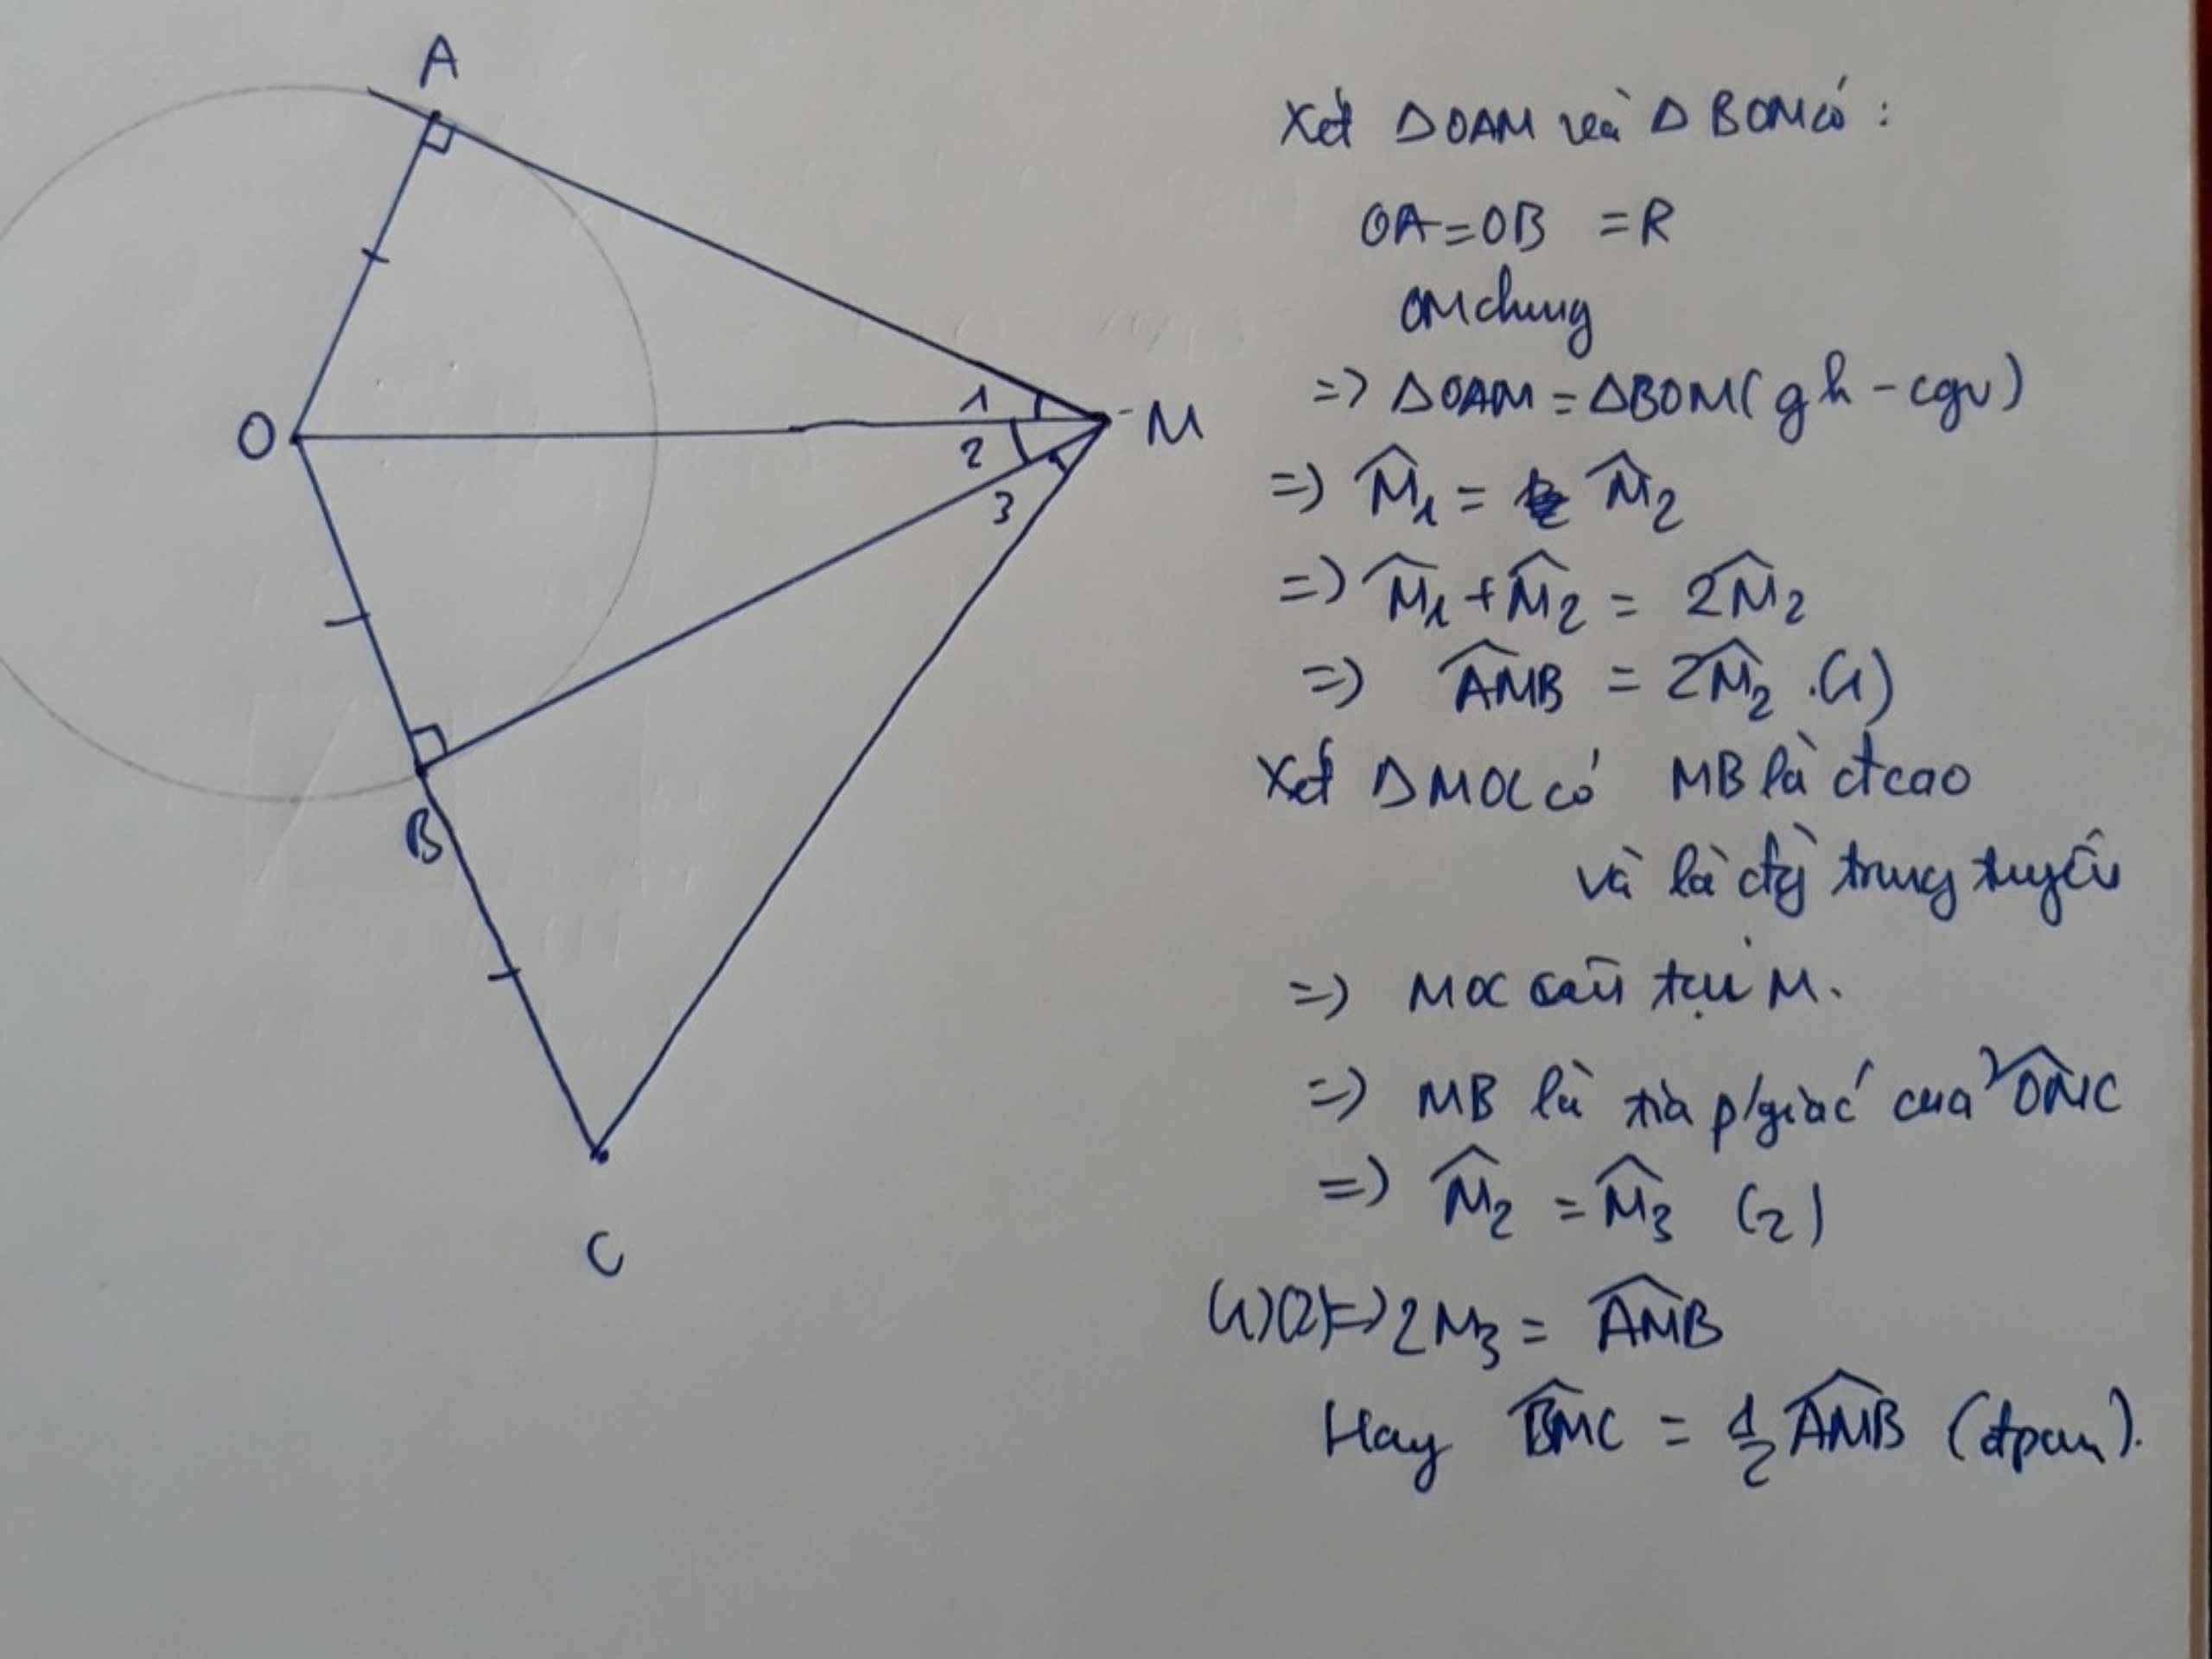 A
O
1
2
3
M
B
C
Xét ΔOAM và ΔBOM có :
OA=OB = R
OM chung
=> ΔOAM = ΔBOM ( gh - cgv )
=> M̂₁ = M̂₂
=> M̂₁ + M̂₂ = 2M̂₂
=> \widehat{AMB} = 2M̂₂ . (1)
Xét ΔMOC có MB là đcao
và là đg trung tuyến
=> MOC cân tại M.
=> MB là tia p/giác của \widehat{OMC}
=> M̂₂ = M̂₃ (2)
(1)(2) => 2M₃ = \widehat{AMB}
Hay \widehat{BMC} = 1/2 \widehat{AMB} (đpcm).